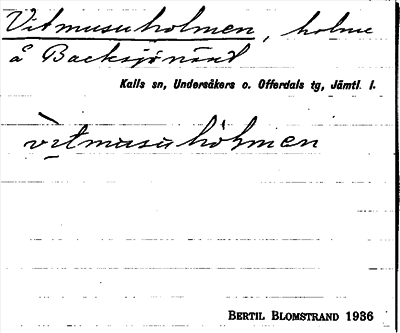 Vitmusuholmen, holme
å Backsjönäset
Kalls sn, Undersåkers o. Offerdals tg, Jämtl. l.
vitmusuhòḥmen
BERTIL BLOMSTRAND 1936